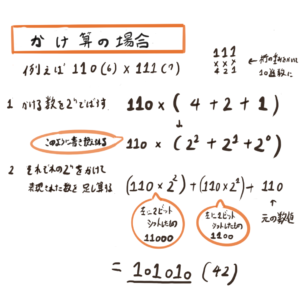 かけ算の場合
例えば 110(6) × 111(7)
111
×××
421
←桁の重みをかけ
10進数に
1 かける数を2ⁿでばす
110 × ( 4 + 2 + 1 )
↓
このように書き換える
110 × ( 2² + 2¹ + 2⁰ )
2 それぞれの2ⁿをかけて
表現された数を足し算する
(110×2²) + (110×2¹) + 110
左に2ビット
シフトしたもの
11000
左に1ビット
シフトしたもの
1100
↑
元の数値
= 101010 (42)